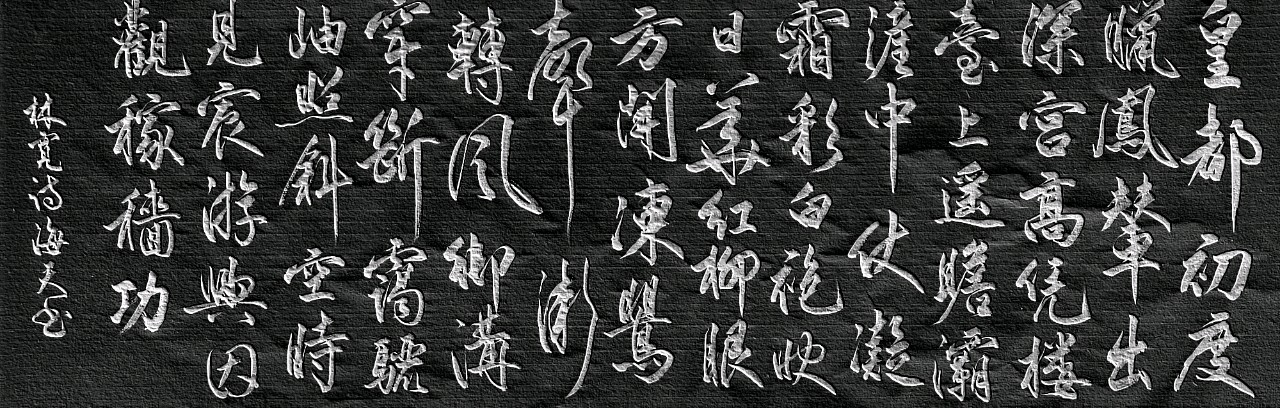 皇都初度
臘鳳輦出
深宮高凭樓
臺上遥瞻灞
滻中仗凝
霜彩白袍映
日華紅柳眼
方開凍鶯
聲漸
轉風御溝
穿斷靄驪
岫照斜空時
見宸游興因
觀稼穡功
林寬詩海书